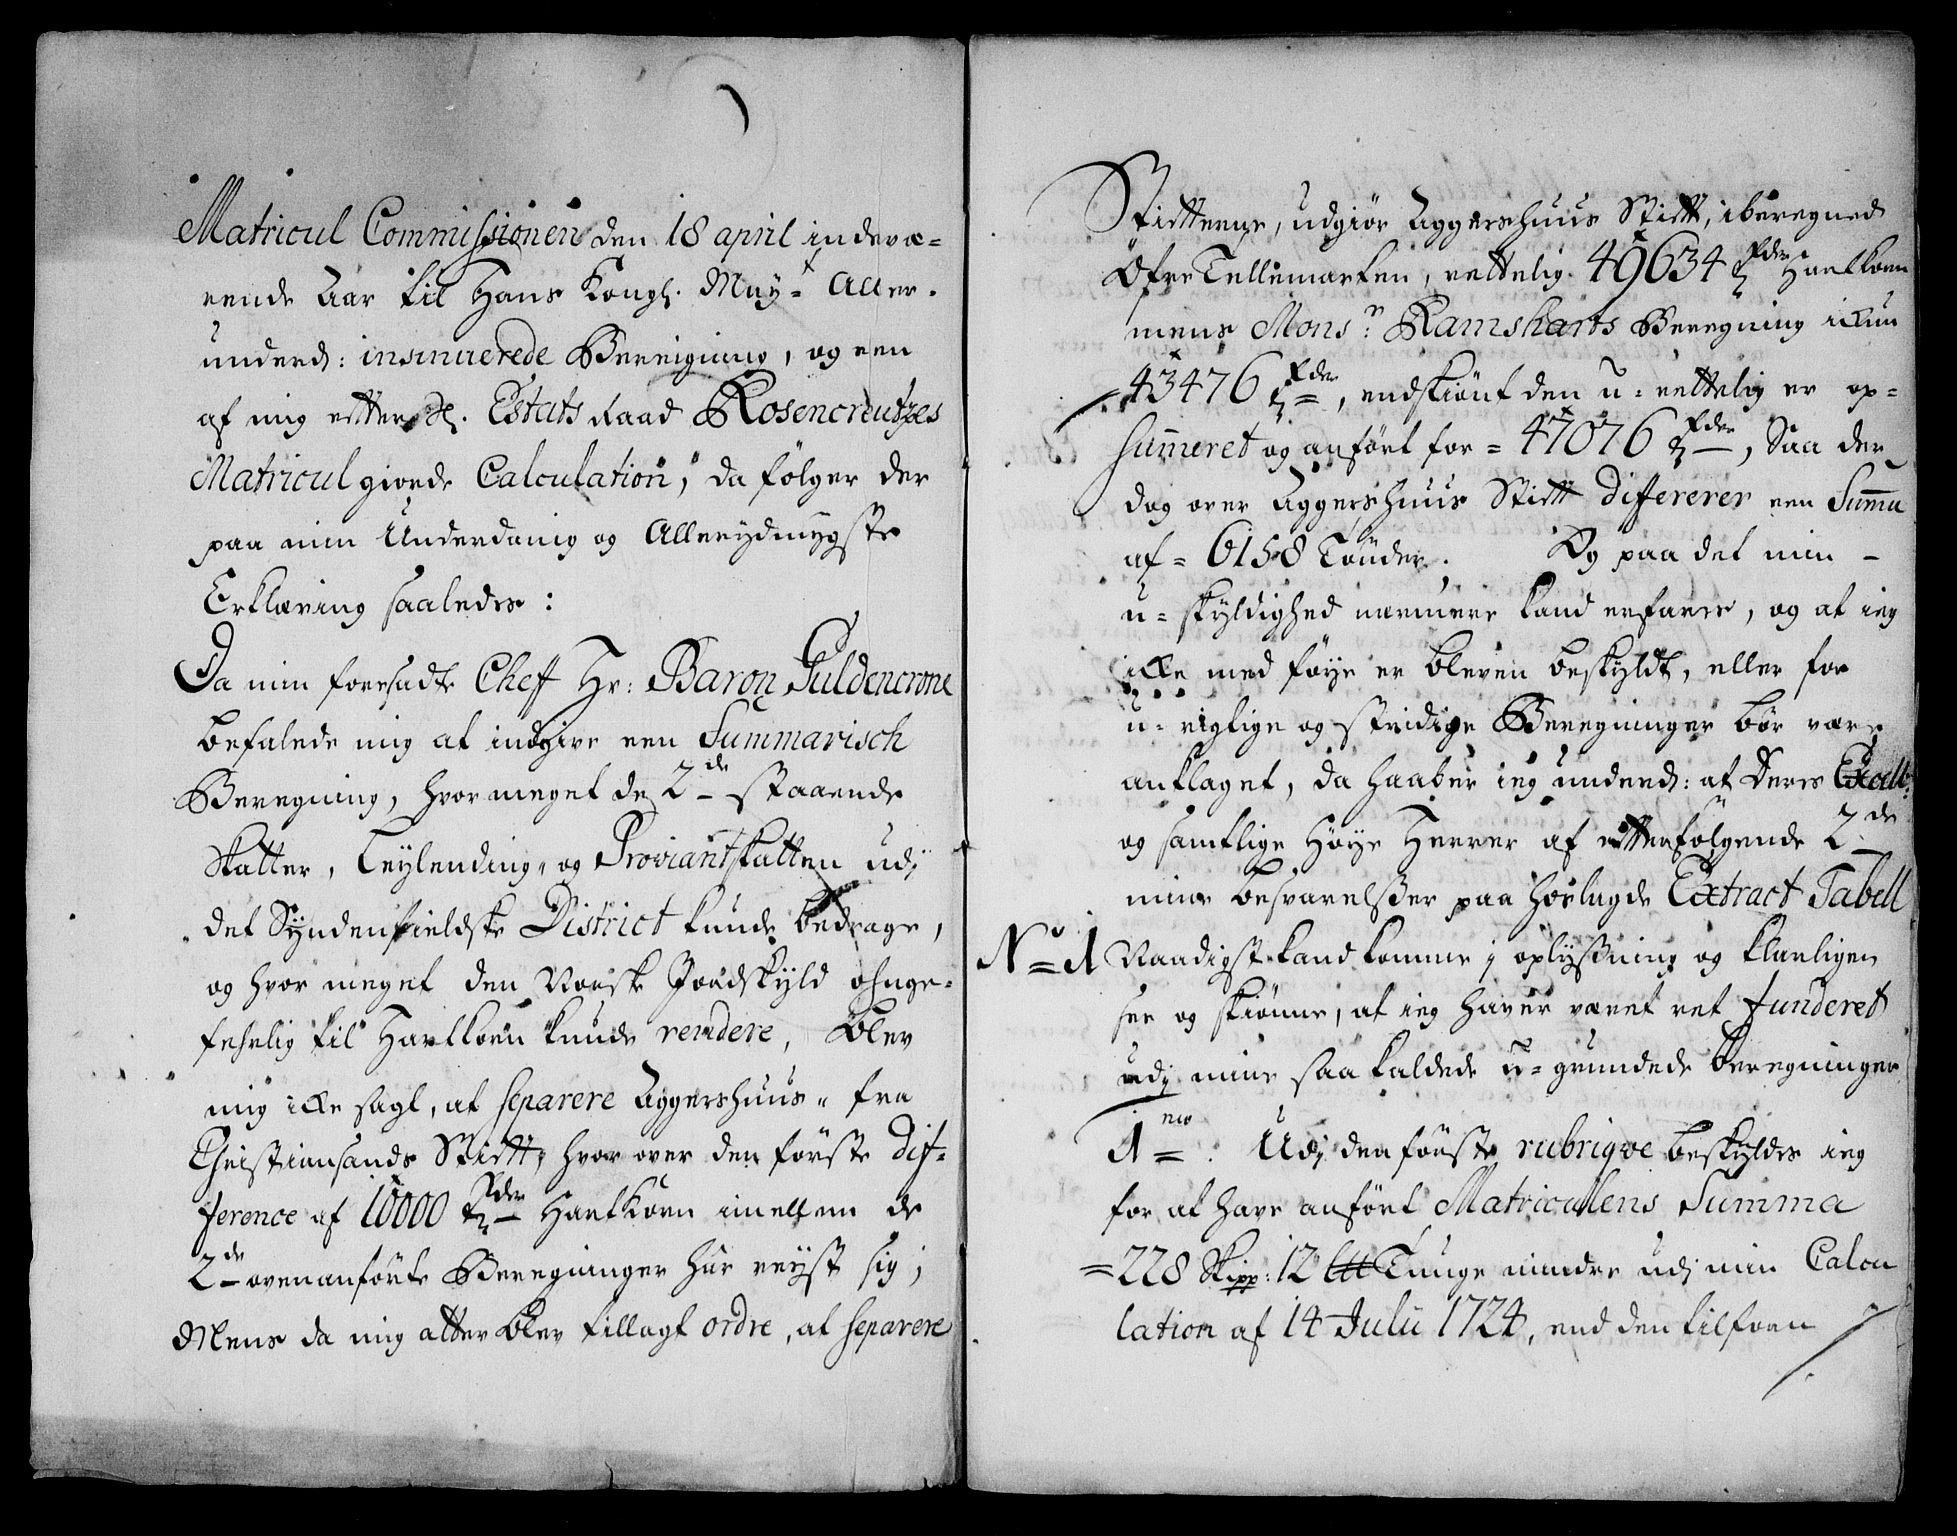 Matricul Commissionen den 18 april indevæ=
rende Aar til Hans Kongl. May.t Aller.
underd: insinuerede Beregning, og een
af mig efter H. Estats Raad Rosencreutzes
Matricul giorde Calculation, da følger der
paa min Underdanig og Allerydmygste
Erklæring saaledes:
Da min forrsadte Cheff Hr: Baron Guldencrone
befalede mig at indgive een Summarisch
Beregning, hvor meget de 2de staaende
Skatter, Leylending- og Proviantskatten udj
det Syndenfieldske District kunde bedrage,
og hvor meget den Norske Jordskyld ohnge=
fehrlig til Hartkorn kunde rendere, blev
mig icke sagt, at separere Aggershuus- fra
Christiansands Stift, hvor over den første Dif=
ference af 10000 tr. Hartkorn imellem de
2de ovenanførte Beregninger har reyst sig,
Mens da mig atter blev tillagt ordre, at separere
Stifterne, udgiør Aggershuus Stift, iberegned
Øfre Tellemarken, rettelig 49634 tr. Hartkorn
mens Monsr. Ramsharts Beregning ickun
43476 tr., endskiønt den u-rettelig er op=
summeret og anført for = 47076 tr., Saa der
dog over Aggershuus Stift differerer een Summa
af = 6158 Tønder. Og paa det min
u=skyldighed nermere kand erfares, og at ieg
icke med føye er bleven beskyldt, eller for
u-rigtige og stridige Beregninger bør være
anklaget, da haaber ieg underd: at Deres Excell:
og samtlige Høye Herrer af efterfølgende 2de
mine besvarelsser paa hoslagde Extract Tabell
No 1 Naadigst kand komme i oplyssning og klarligen
see og skiønne, at ieg haver været ret funderet
udj mine saa kaldede u-grundede beregninger
1mo. Udj den første rubriqve beskyldes ieg
for at have anført Matricullens Summa
=228 Skipp: 12 Ltt Tunge mindre udj min Calcu
lation af 14 Julii 1724, end den tilforn